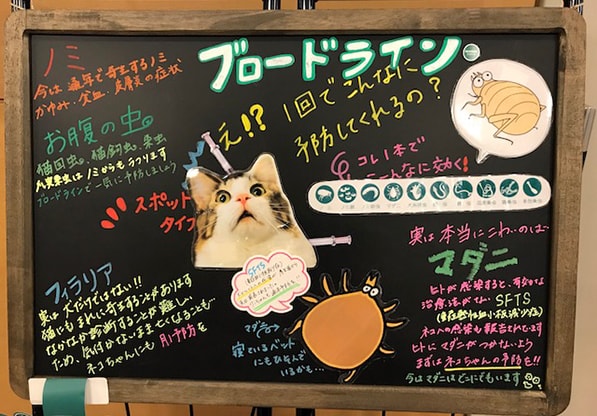 ブロードライン
ノミ
今は通年で寄生するノミ
かゆみ、貧血、皮膚の症状
お腹の虫
猫回虫、猫鉤虫、条虫
瓜実条虫はノミからもうつります
ブロードラインで一気に予防しましょう
え!?
1回でこんなに
予防してくれるの?
コレ1本で
こーんなに効く!
スポット
タイプ
フィラリア
実は犬だけではない!!
猫にもまれに寄生することがあります
なかなか診断することが難しい
ため、気付かないまま亡くなることも…
ネコちゃんにも予防を
SFTS
マダニ
寝ているペット
にもひそんで
いるかも…
実は本当にこわいのは…
マダニ
ヒトが感染すると、有効な
治療法がない SFTS
(重症熱性血小板減少症)
ネコへの感染も報告されています
ヒトにマダニがつかないよう
まずはネコちゃんの予防を!!
今はマダニはどこにでもいます